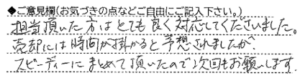 ◆ご意見欄(お気づきの点などご自由にご記入下さい。)
担当頂いた方はとても良く対応してくださいました。
売却には時間が掛かると予想されましたが、
スピーディーにまとめて頂いたので次回もお願いします